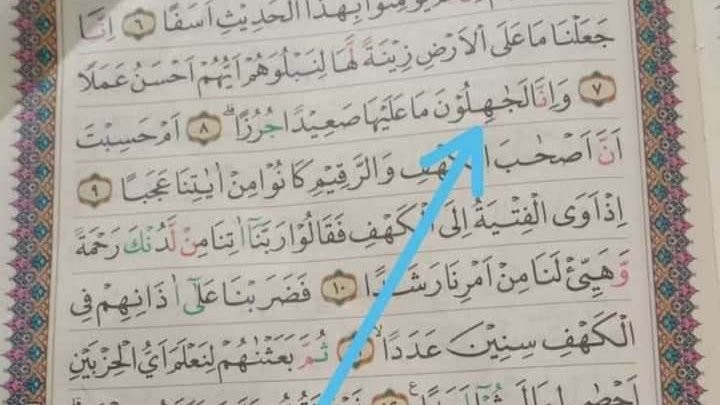 بِهٰذَا الْحَدِيْثِ اَسَفًا ٦ اِنَّا
جَعَلْنَا مَا عَلَى الْاَرْضِ زِيْنَةً لَّهَا لِنَبْلُوَهُمْ اَيُّهُمْ اَحْسَنُ عَمَلًا
٧ وَاِنَّا لَجٰهِلُوْنَ مَا عَلَيْهَا صَعِيْدًا جُرُزًاۗ ٨ اَمْ حَسِبْتَ
اَنَّ اَصْحٰبَ الْكَهْفِ وَالرَّقِيْمِ كَانُوْا مِنْ اٰيٰتِنَا عَجَبًا ٩
اِذْ اَوَى الْفِتْيَةُ اِلَى الْكَهْفِ فَقَالُوْا رَبَّنَآ اٰتِنَا مِنْ لَّدُنْكَ رَحْمَةً
وَّهَيِّئْ لَنَا مِنْ اَمْرِنَا رَشَدًا ١٠ فَضَرَبْنَا عَلٰٓى اٰذَانِهِمْ فِى
الْكَهْفِ سِنِيْنَ عَدَدًاۙ ثُمَّ بَعَثْنٰهُمْ لِنَعْلَمَ اَيُّ الْحِزْبَيْنِ